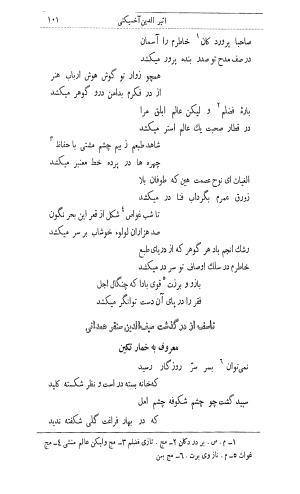 اثیر الدین آخسیکتی
۱۰۱
صاحبا پرورد کان ۱ خاطرم را آسمان
در صف مدح تو صدر بنده پرور میکشد
همچو زوار تو گوش هوش ارباب هنر
از در فکرم بدامن در و گوهر میکشد
بارۀ فضلم ۲ و لیکن عالم ابلق مرا
در قطار صحبت یك عالم استر میکشد
شاهد طبعم ز بیم چشم مشتی با حفاظ ۳
چهره ها در پرده خط معنبر میکشد
الغیاث ای نوح عصمت هین که طوفان بلا
زورق عمرم بگرداب فنا در میکشد
تا شب غواص ۴ شکل از قعر این بحر نگون
صد هزاران لولوء خوشاب بر سر میکشد
رشك انجم باد هر گوهر که از دریای طبع
خاطرم در سلك اوصاف تو سر در میکشد
بازو برزت ۵ قوی بادا که چنگال اجل
فقر را در پای آن دست توانگر میکشد
تاسف از در گذشت صیف الدین سنقر همدانی
معروف به خمار تکین
نمی‌توان ۶ بسر سرّ روزگار رسید
که‌خانه بسته در است و نظر شکسته کلید
سپید گشت چو چشم شکوفه چشم امل
که در بهار فراغت گلی شکفته ندید
۱ـ م . ص . بر در دکان ۲ـ مج . تازی فضلم ۳ـ مج ولیکن عالم منشی ۴ـ مج
غوات ۵ـ م . ناز وی برت ۶ـ مج بمن